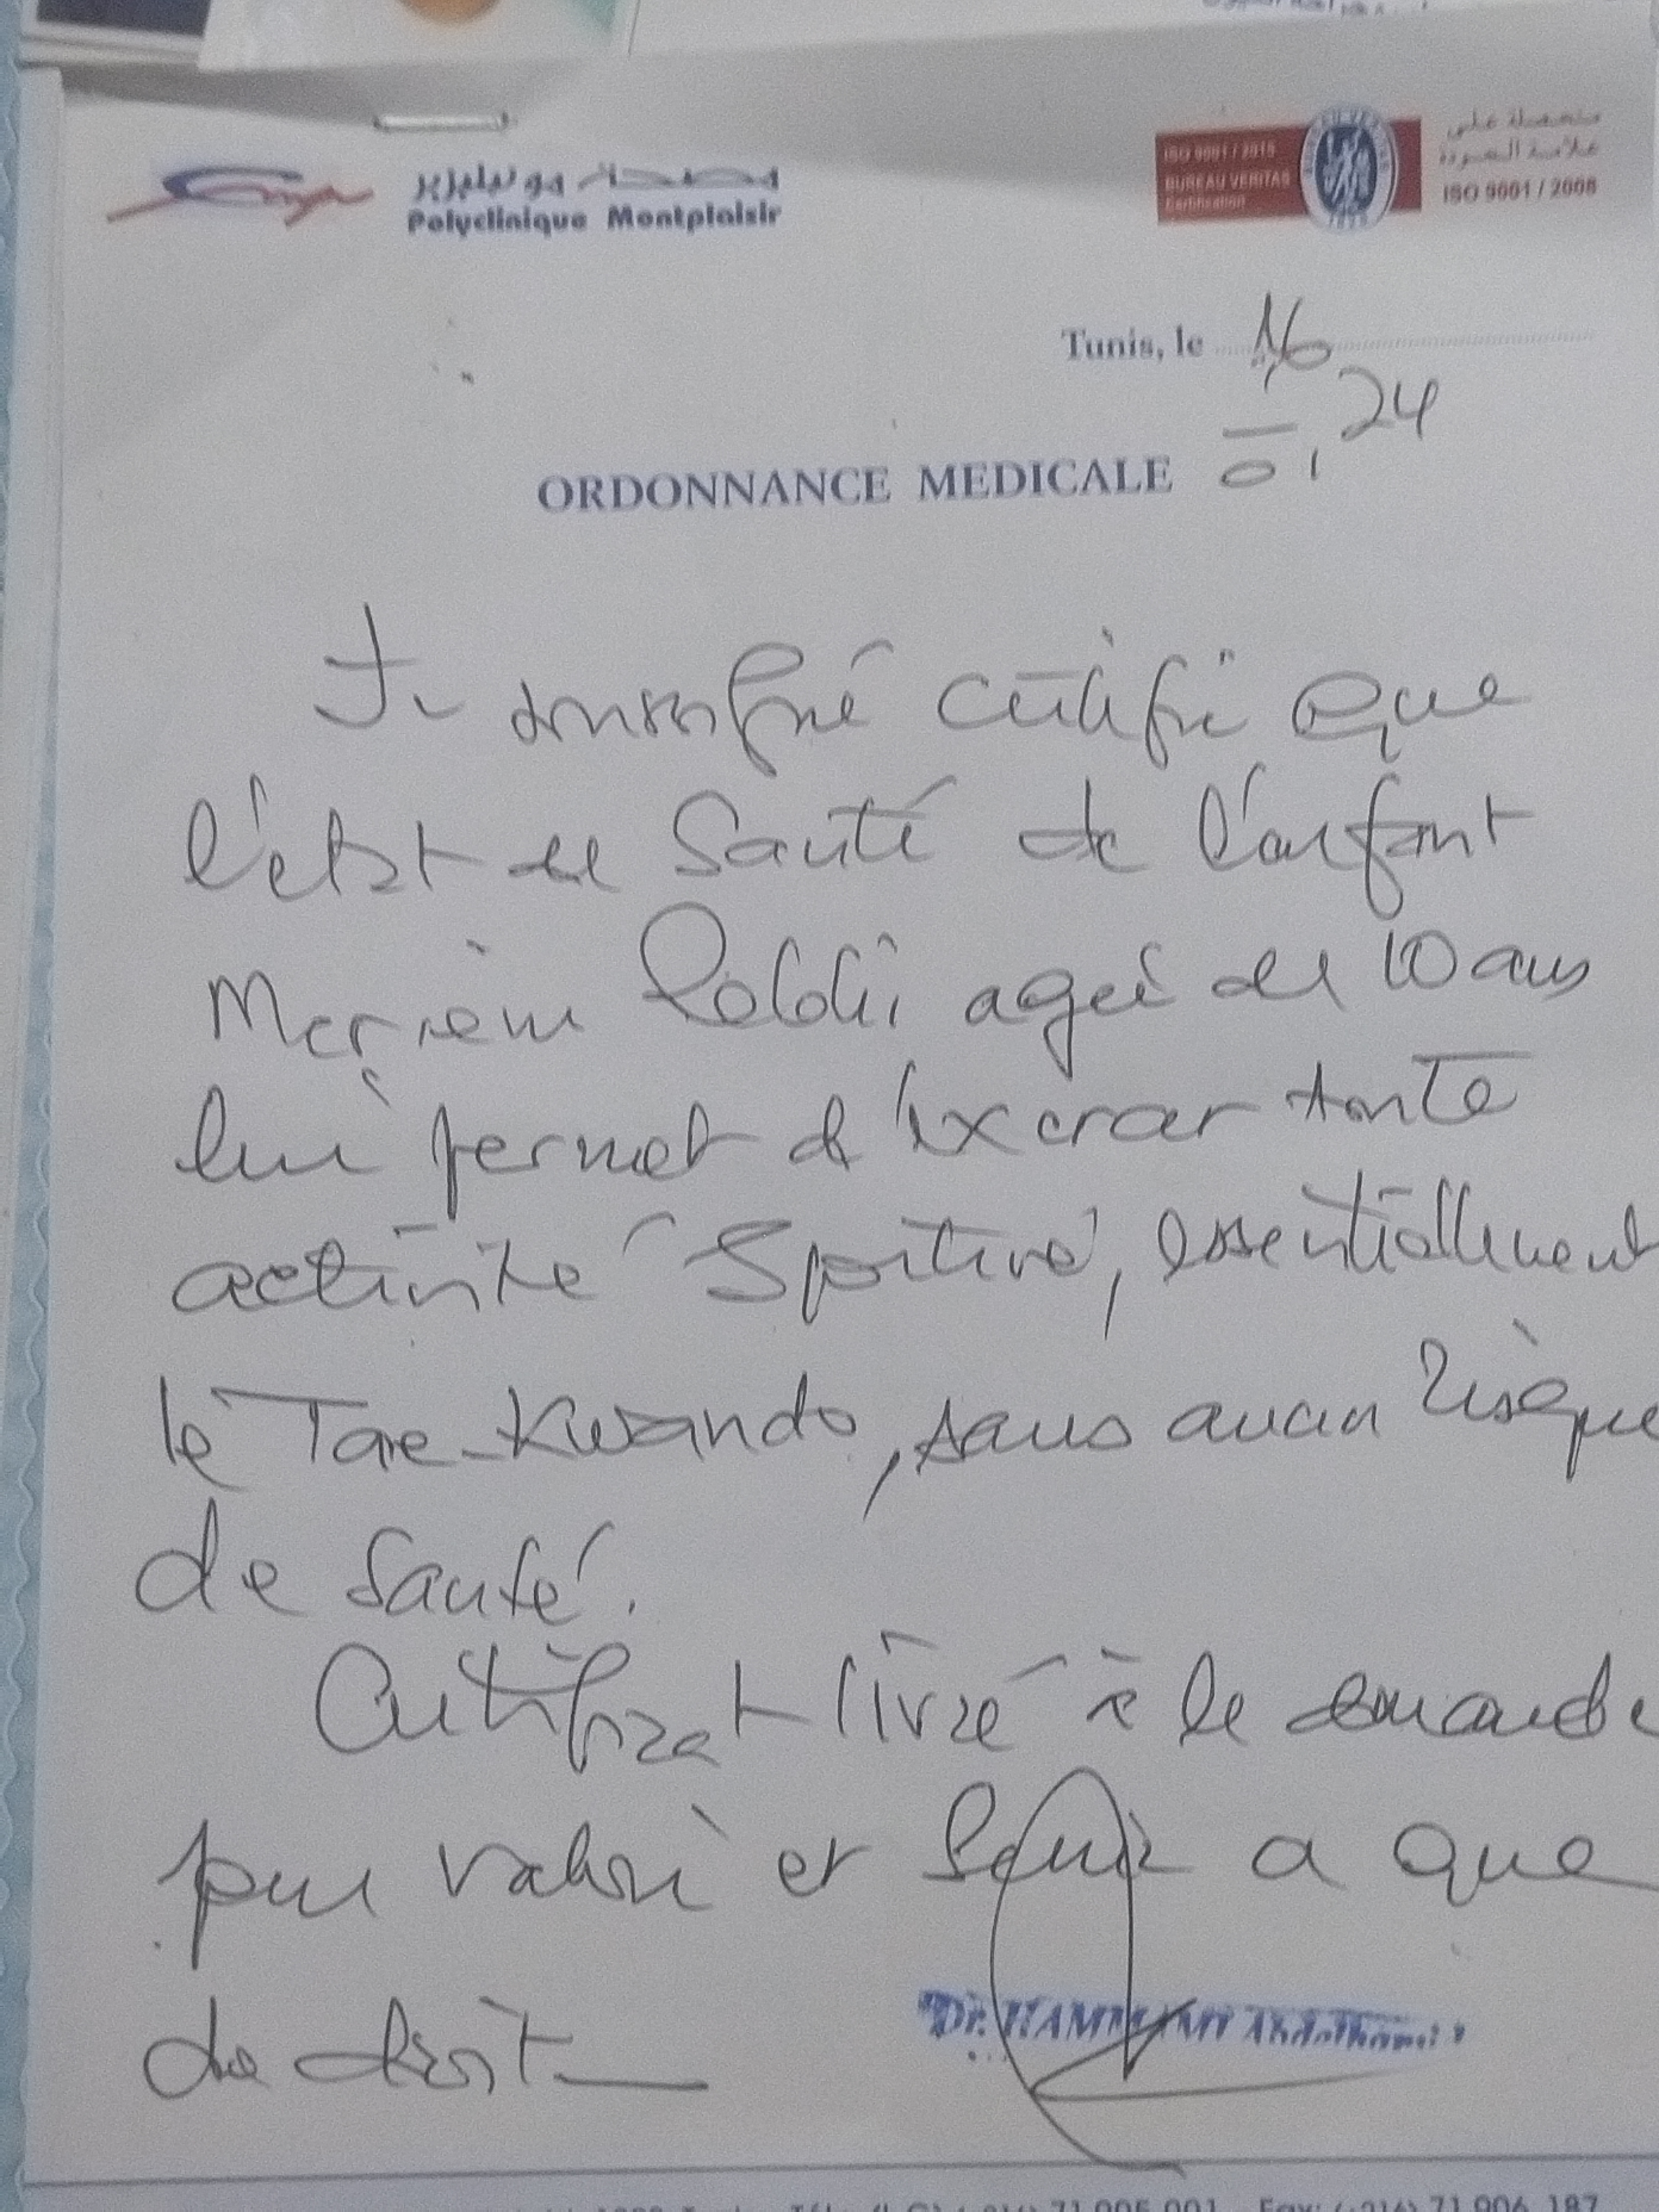 مصحة مونبليزير
Polyclinique Montplaisir
ISO 9001 / 2015
BUREAU VERITAS
Certification
متحصلة على
علامة الجودة
ISO 9001 / 2008
Tunis, le 16
01 24
ORDONNANCE MEDICALE
Je soussigné certifie que
l'état de santé de l'enfant
Merieme agée de 10 ans
lui permet d'exercer toute
activité sportive, essentiellement
le Tae-Kwando, sans aucun risque
de santé.
Certificat livré à la demande
pour valoir et servir a que
de droit
Dr. HAMMAMI Abdelhamid
71 905 001 Fax: (+216) 71 906 187